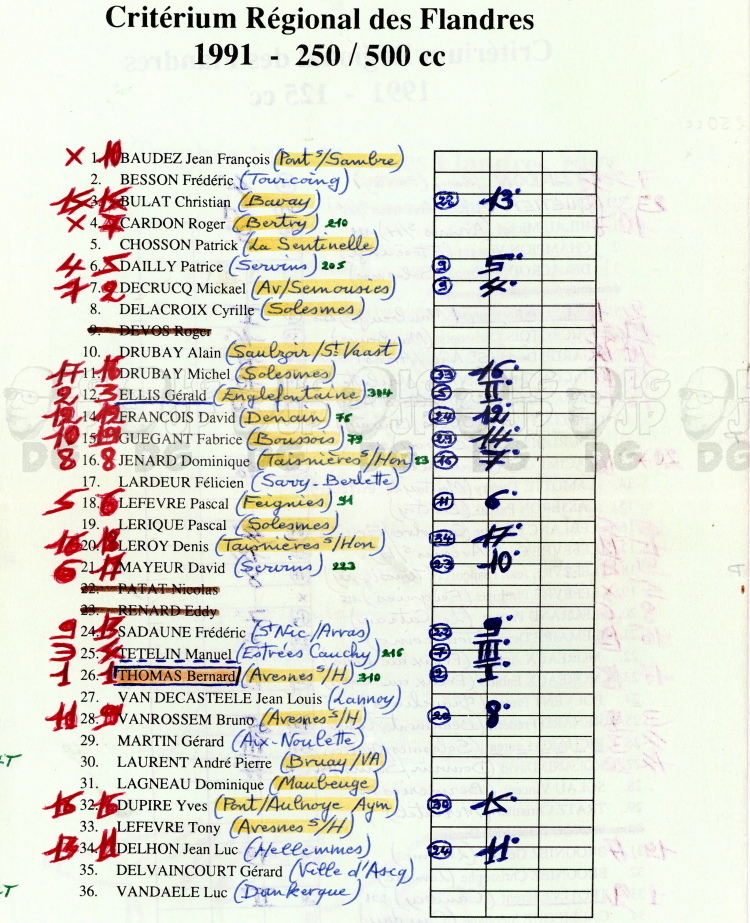 Critérium Régional des Flandres
1991 - 250 / 500 cc
X 1. 10 BAUDEZ Jean François (Pont s/Sambre)
2. BESSON Frédéric (Tourcoing)
15 3. BULAT Christian (Bavay) 22 13
X 4. CARDON Roger (Bertry) 210
5. CHOSSON Patrick (La Sentinelle)
4 6. 5 DAILLY Patrice (Servins) 205 9 5
7 7. 2 DECRUCQ Mickael (Av/Semousies) 9 4
8. DELACROIX Cyrille (Solesmes)
9. DEVOS Roger
10. DRUBAY Alain (Saulzoir/St Vaast)
17 11. 16 DRUBAY Michel (Solesmes) 16
2 12. 3 ELLIS Gérald (Englefontaine) 304 5 II
12 14. FRANCOIS David (Denain) 76 24 12
10 15. GUEGANT Fabrice (Boussois) 79 29 14
8 16. 8 JENARD Dominique (Taisnières s/Hon) 83 16 7
17. LARDEUR Félicien (Savy-Berlette)
5 18. 6 LEFEVRE Pascal (Feignies) 91 11 6
19. LERIQUE Pascal (Solesmes)
20. 18 LEROY Denis (Taisnières s/Hon) 34 17
6 21. MAYEUR David (Servins) 223 23 10
22. PATAT Nicolas
23. RENARD Eddy
9 24. 13 SADAUNE Frédéric (St Nic/Arras) 9
3 25. 4 TETELIN Manuel (Estrées Cauchy) 216 7 III
1 26. 1 THOMAS Bernard (Avesnes s/H) 310 2 I
27. VAN DECASTEELE Jean Louis (Lannoy)
11 28. 9 VANROSSEM Bruno (Avesnes s/H) 20 8
29. MARTIN Gérard (Aix-Noulette)
30. LAURENT André Pierre (Bruay/VA)
31. LAGNEAU Dominique (Maubeuge)
32. DUPIRE Yves (Pont/Aulnoye Aym) 30 15
33. LEFEVRE Tony (Avesnes s/H)
13 34. 11 DELHON Jean Luc (Hellemmes) 24 11
35. DELVAINCOURT Gérard (Ville d'Ascq)
36. VANDAELE Luc (Dunkerque)